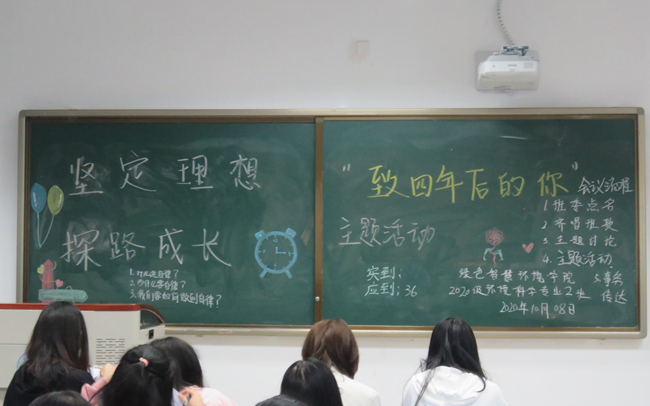 坚定理想
探路成长
1.什么是自律?
2.为什么要自律?
3.我们需如何做到自律?
"致四年后的你"
主题活动
会议流程
1 班委点名
2 齐唱班歌
3 主题讨论
4 主题活动
实到:
应到:36
绿色智慧环境学院
2020级环境科学专业2班
传达
2020年10月08日